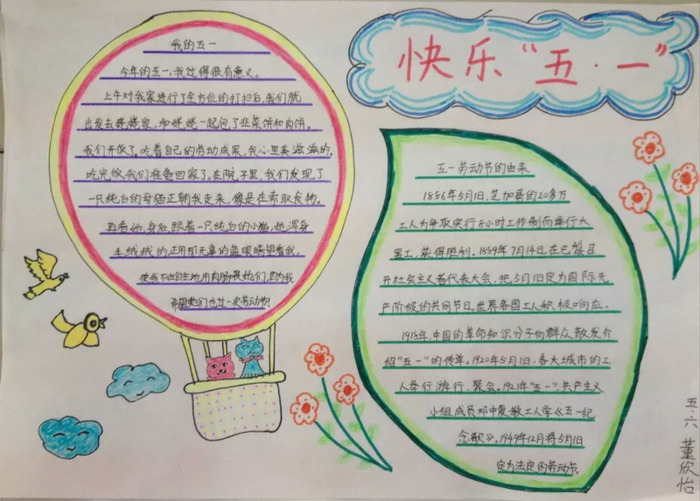 快乐"五·一"
我的五一
今年的五一,我过得很有意义。
上午对我家进行了全方位的打扫后,我们就
出发去姥姥家,和姥姥一起包了韭菜饼和肉饼。
我们开饭了。吃着自己的劳动成果,我心里美滋滋的。
吃完饭我们准备回家了。在院子里,我们发现了
一只纯白的母猫正朝我走来,像是在索取食物。
再看她身后,跟着一只纯白的小猫,她浑身
毛绒绒的正用那无辜的蓝眼睛望着我,
使我不由自主地用肉肠喂她们,
她们也过一次劳动节!
五一劳动节的由来
1886年5月1日,芝加哥的20多万
工人为争取实行8小时工作制而举行大
罢工,获得胜利。1889年7月14日,在巴黎召
开社会主义者代表大会,把5月1日定为国际无
产阶级的共同节日,世界各国工人积极响应。
1918年,中国的革命知识分子向群众散发介
绍"五一"的传单。1920年5月1日,各大城市的工
人举行游行、聚会。1921年"五一",共产主义
小组成员邓中夏教工人学《五一纪
念歌》。1949年12月将5月1日
定为法定的劳动节。
五六 董欣怡